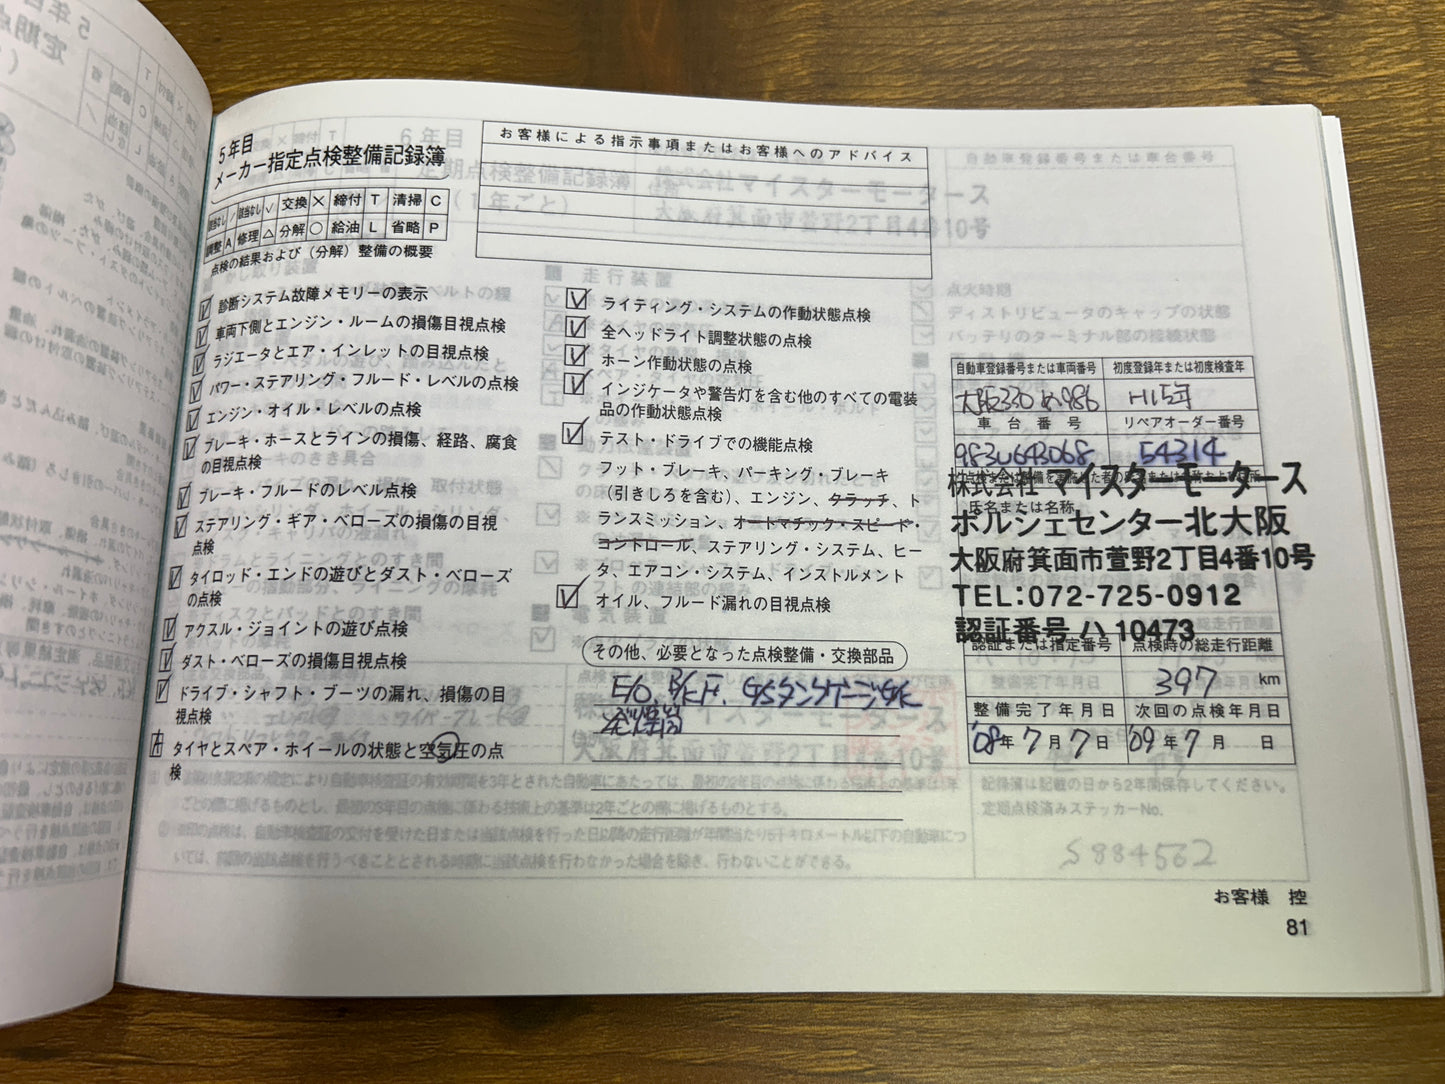 5年目
メーカー指定点検整備記録簿
該当なし / 該当なし ✓ 交換 × 締付 T 清掃 C
調整 A 修理 △ 分解 ○ 給油 L 省略 P
点検の結果および(分解)整備の概要
診断システム故障メモリーの表示
車両下側とエンジン・ルームの損傷目視点検
ラジエータとエア・インレットの目視点検
パワー・ステアリング・フルード・レベルの点検
エンジン・オイル・レベルの点検
ブレーキ・ホースとラインの損傷、経路、腐食
の目視点検
ブレーキ・フルードのレベル点検
ステアリング・ギア・ベローズの損傷の目視
点検
タイロッド・エンドの遊びとダスト・ベローズ
の点検
アクスル・ジョイントの遊び点検
ダスト・ベローズの損傷目視点検
ドライブ・シャフト・ブーツの漏れ、損傷の目
視点検
タイヤとスペア・ホイールの状態と空気圧の点
検
お客様による指示事項またはお客様へのアドバイス
ライティング・システムの作動状態点検
全ヘッドライト調整状態の点検
ホーン作動状態の点検
インジケータや警告灯を含む他のすべての電装
品の作動状態点検
テスト・ドライブでの機能点検
フット・ブレーキ、パーキング・ブレーキ
(引きしろを含む)、エンジン、クラッチ、ト
ランスミッション、オートマチック・スピード・
コントロール、ステアリング・システム、ヒー
タ、エアコン・システム、インストルメント
オイル、フルード漏れの目視点検
その他、必要となった点検整備・交換部品
E/O
自動車登録番号または車両番号 初度登録年または初度検査年
大阪330 め986 H15年
車台番号 リペアオーダー番号
983U643068 54314
氏名または名称
株式会社 マイスターモータース
ポルシェセンター北大阪
大阪府箕面市萱野2丁目4番10号
TEL:072-725-0912
認証番号 ハ 10473
認証または指定番号 点検時の総走行距離
397 km
整備完了年月日 次回の点検年月日
'08年7月7日 '09年7月 日
記録簿は記載の日から2年間保存してください。
定期点検済みステッカーNo.
S884562
お客様 控
81